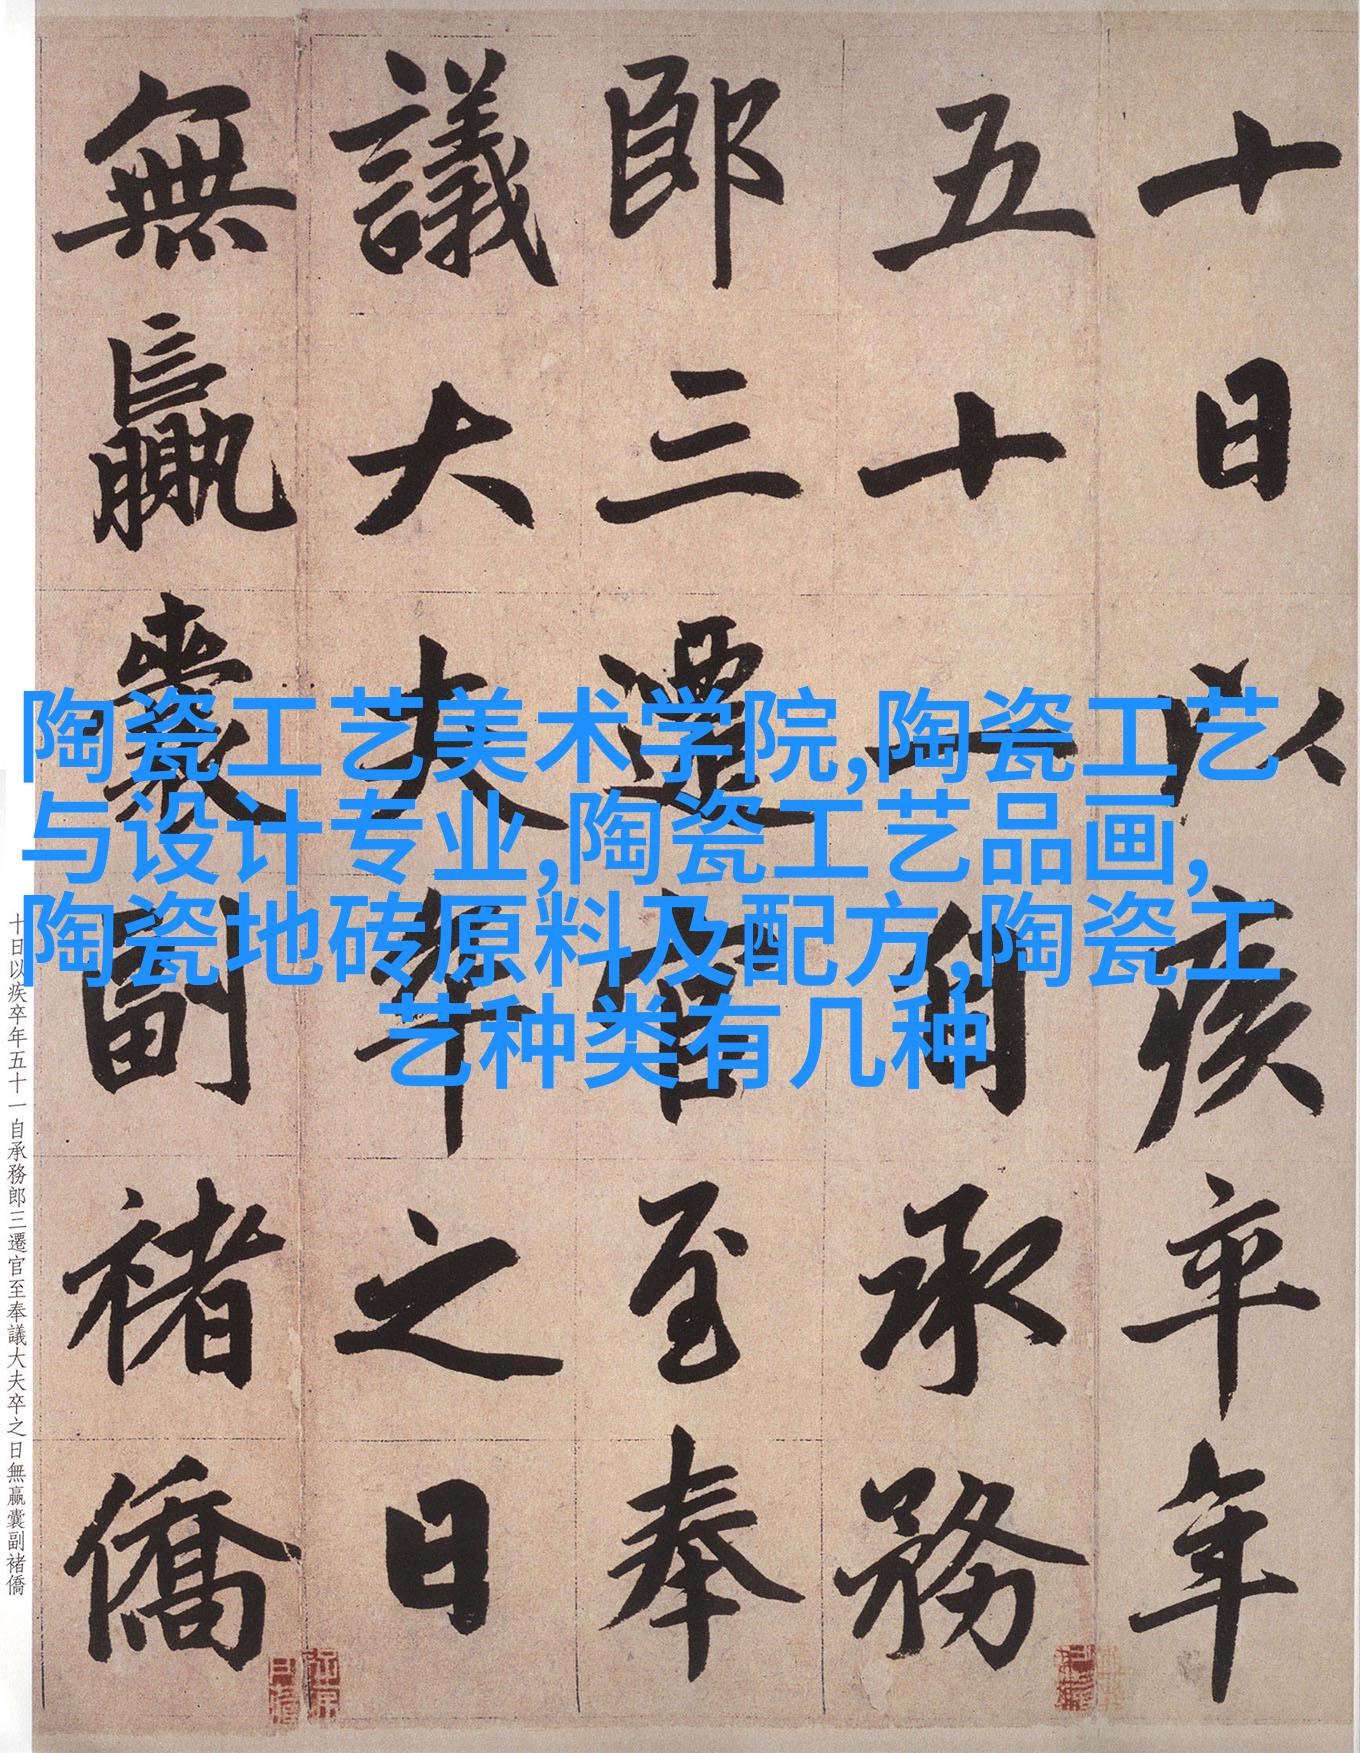 十日以疾卒年
五十一自承務
郎三遷官至奉
議大夫卒之日
無贏囊副褚僑
陶瓷工艺美术学院,陶瓷工艺
与设计专业,陶瓷工艺品画,
陶瓷地砖原料及配方,陶瓷工
艺种类有几种
十日以疾卒年五十一自承務郎三遷官至奉議大夫卒之日無贏囊副褚僑